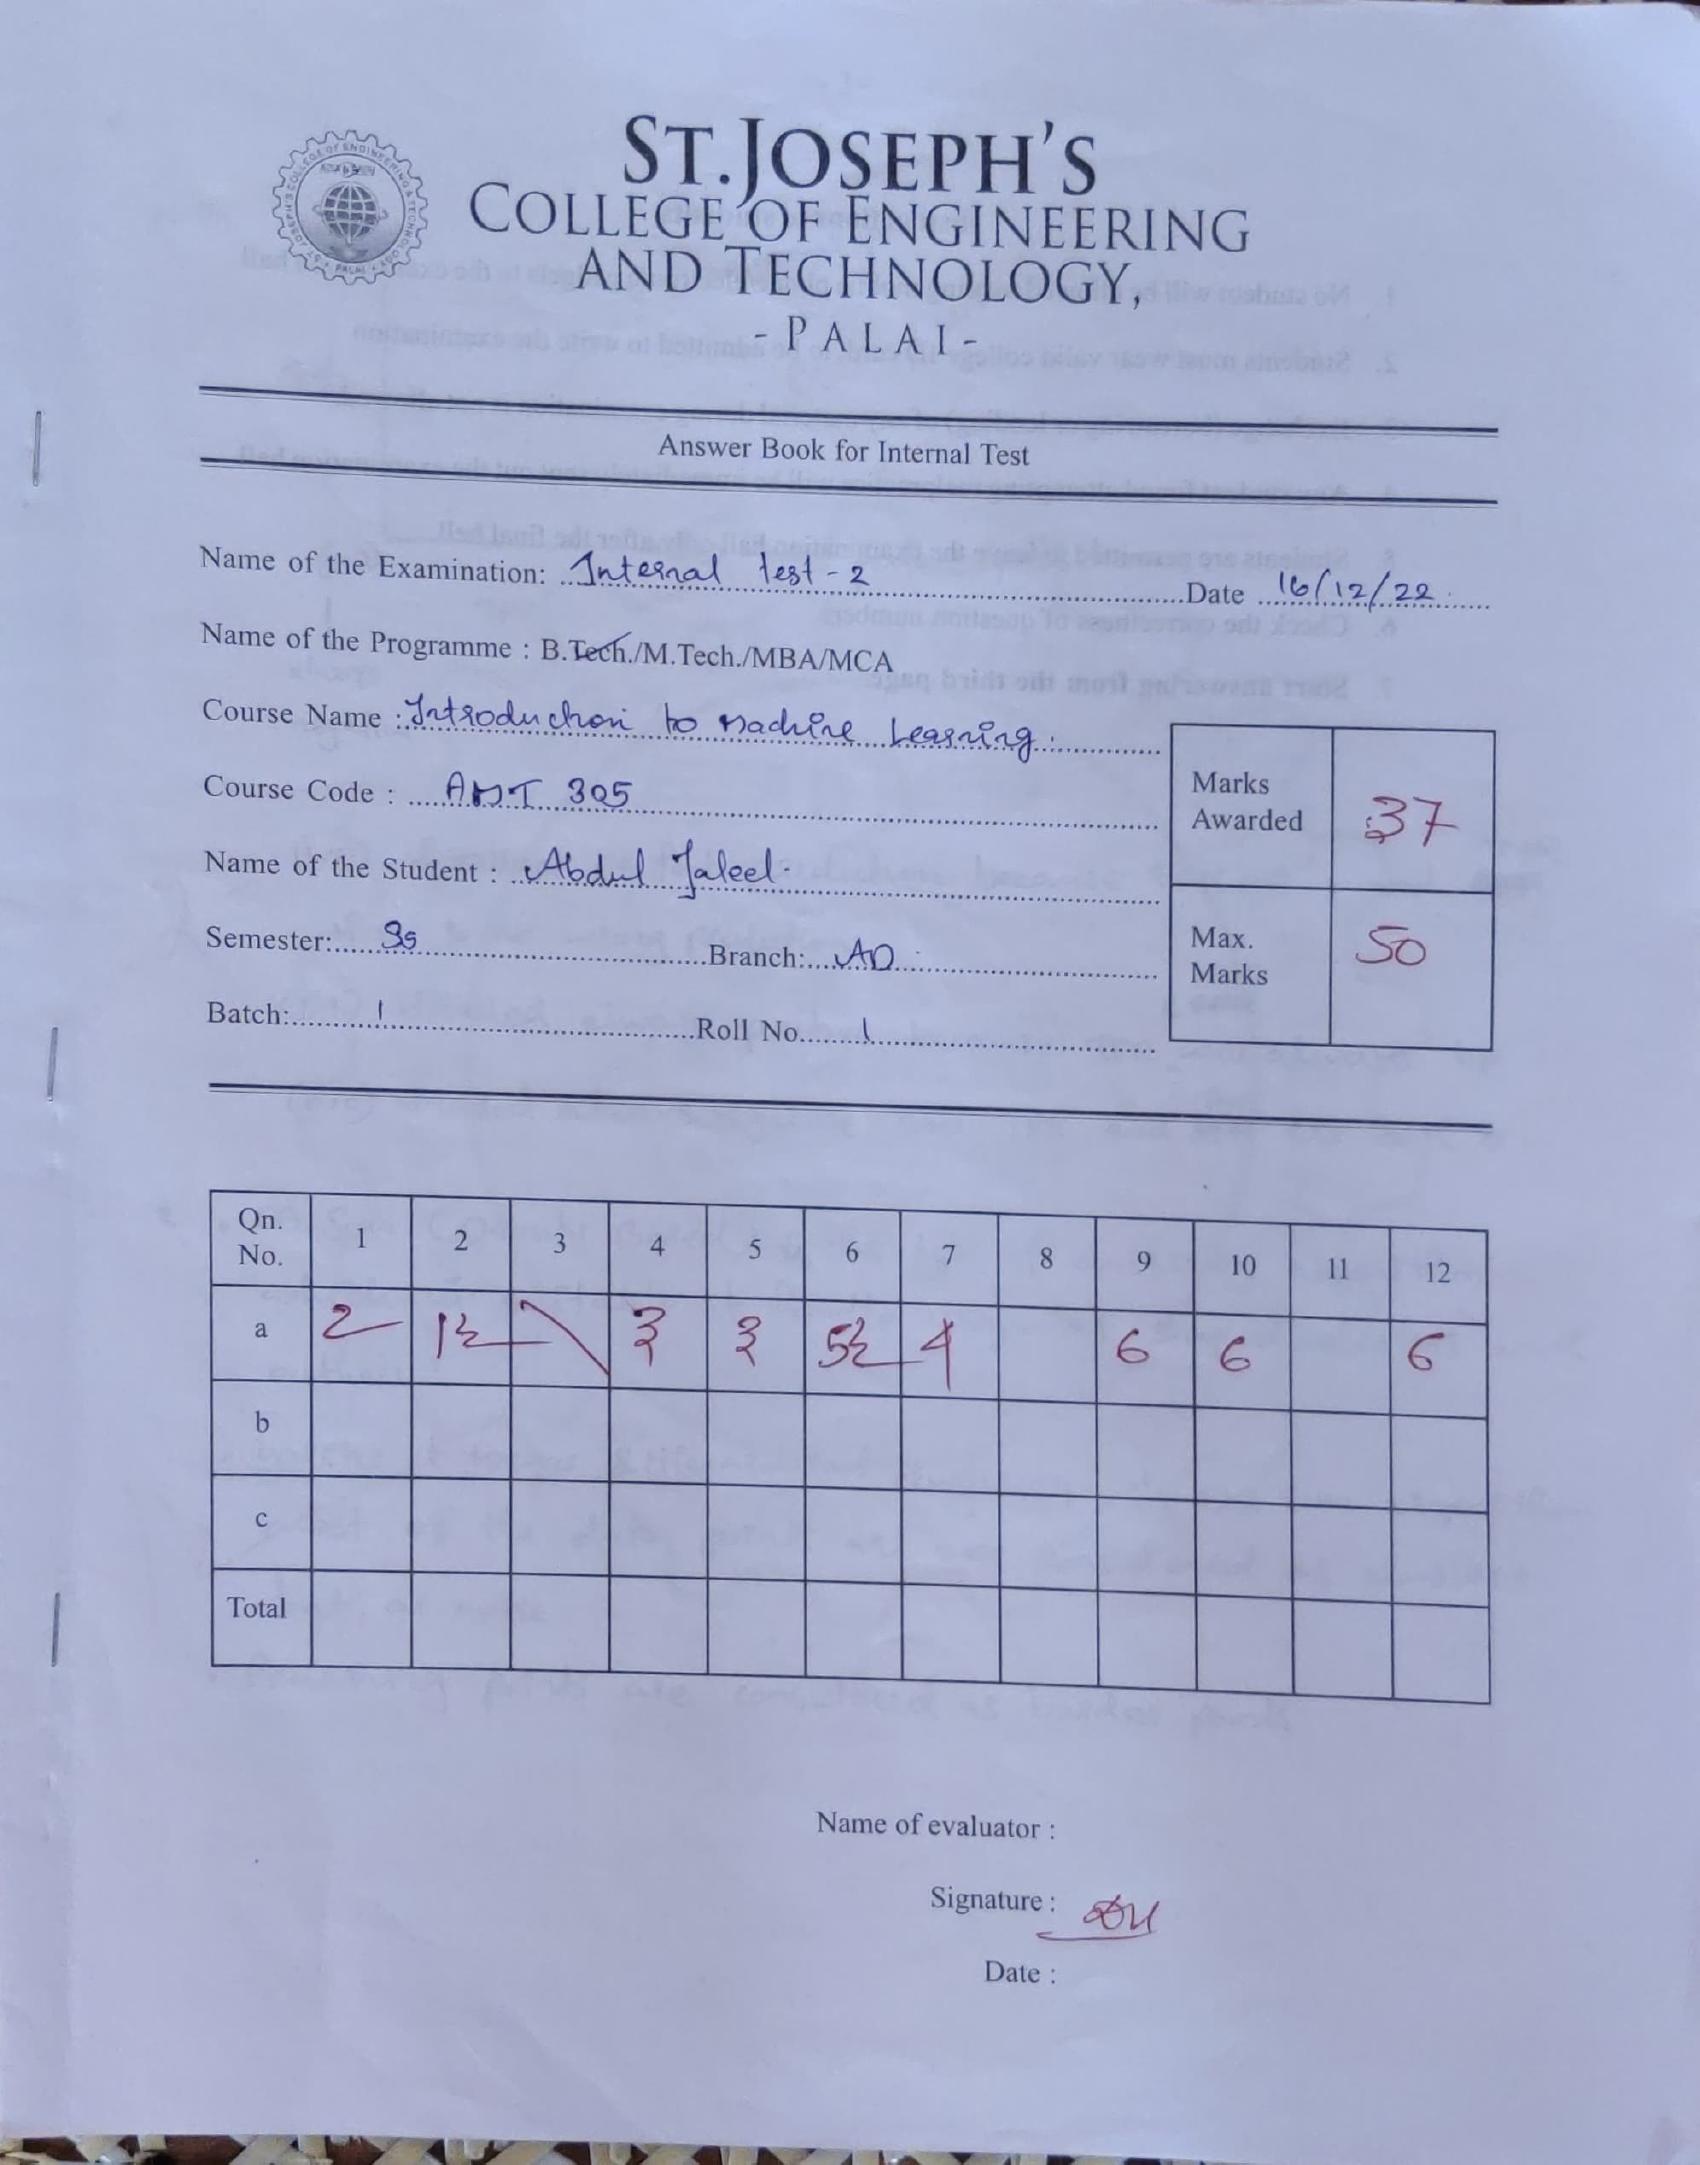 ST. JOSEPH'S
COLLEGE OF ENGINEERING
AND TECHNOLOGY,
- PALAI -
Answer Book for Internal Test
Name of the Examination: Internal test - 2 Date 16/12/22
Name of the Programme : B.Tech./M.Tech./MBA/MCA
Course Name : Introduction to Machine Learning
Course Code : AMT 305
Name of the Student : Abdul Jaleel
Semester: S5 Branch: AD
Batch: 1 Roll No. 1
Marks Awarded 37
Max. Marks 50
Qn. No. 1 2 3 4 5 6 7 8 9 10 11 12
a 2 1½ 3 3 5½ 4 6 6 6
b
c
Total
Name of evaluator :
Signature :
Date :